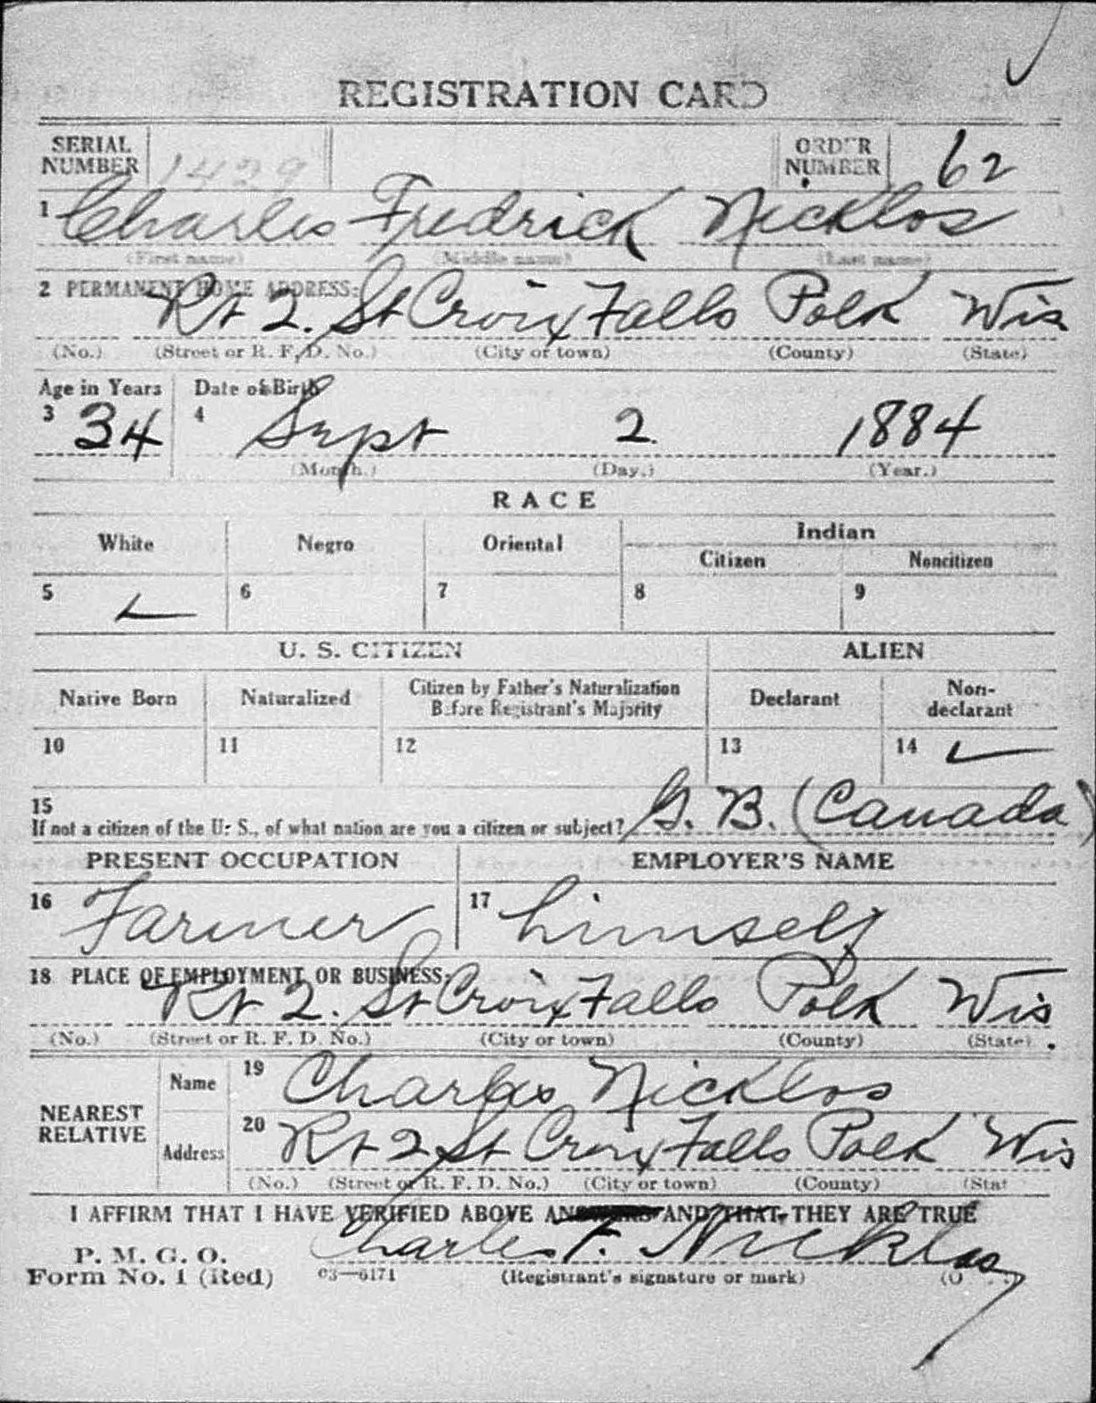 REGISTRATION CARD
SERIAL NUMBER 1429 ORDER NUMBER 62
1 Charles Fredrick Nicklos
(First name) (Middle name) (Last name)
2 PERMANENT HOME ADDRESS:
Rt 2. St Croix Falls Polk Wis
(No.) (Street or R. F. D. No.) (City or town) (County) (State)
Age in Years Date of Birth
3 34 4 Sept 2. 1884
(Month.) (Day.) (Year.)
RACE
White Negro Oriental Indian
Citizen Noncitizen
5 6 7 8 9
U. S. CITIZEN ALIEN
Native Born Naturalized Citizen by Father's Naturalization Before Registrant's Majority Declarant Non-declarant
10 11 12 13 14
15
If not a citizen of the U. S., of what nation are you a citizen or subject? G. B. (Canada)
PRESENT OCCUPATION EMPLOYER'S NAME
16 Farmer 17 himself
18 PLACE OF EMPLOYMENT OR BUSINESS:
Rt 2. St Croix Falls Polk Wis
(No.) (Street or R. F. D. No.) (City or town) (County) (State)
NEAREST RELATIVE Name 19 Charles Nicklos
Address 20 Rt 2 St Croix Falls Polk Wis
(No.) (Street or R. F. D. No.) (City or town) (County) (Stat
I AFFIRM THAT I HAVE VERIFIED ABOVE ANSWERS AND THAT THEY ARE TRUE
P. M. G. O.
Form No. 1 (Red) 03—6171 Charles F. Nicklos
(Registrant's signature or mark) (O